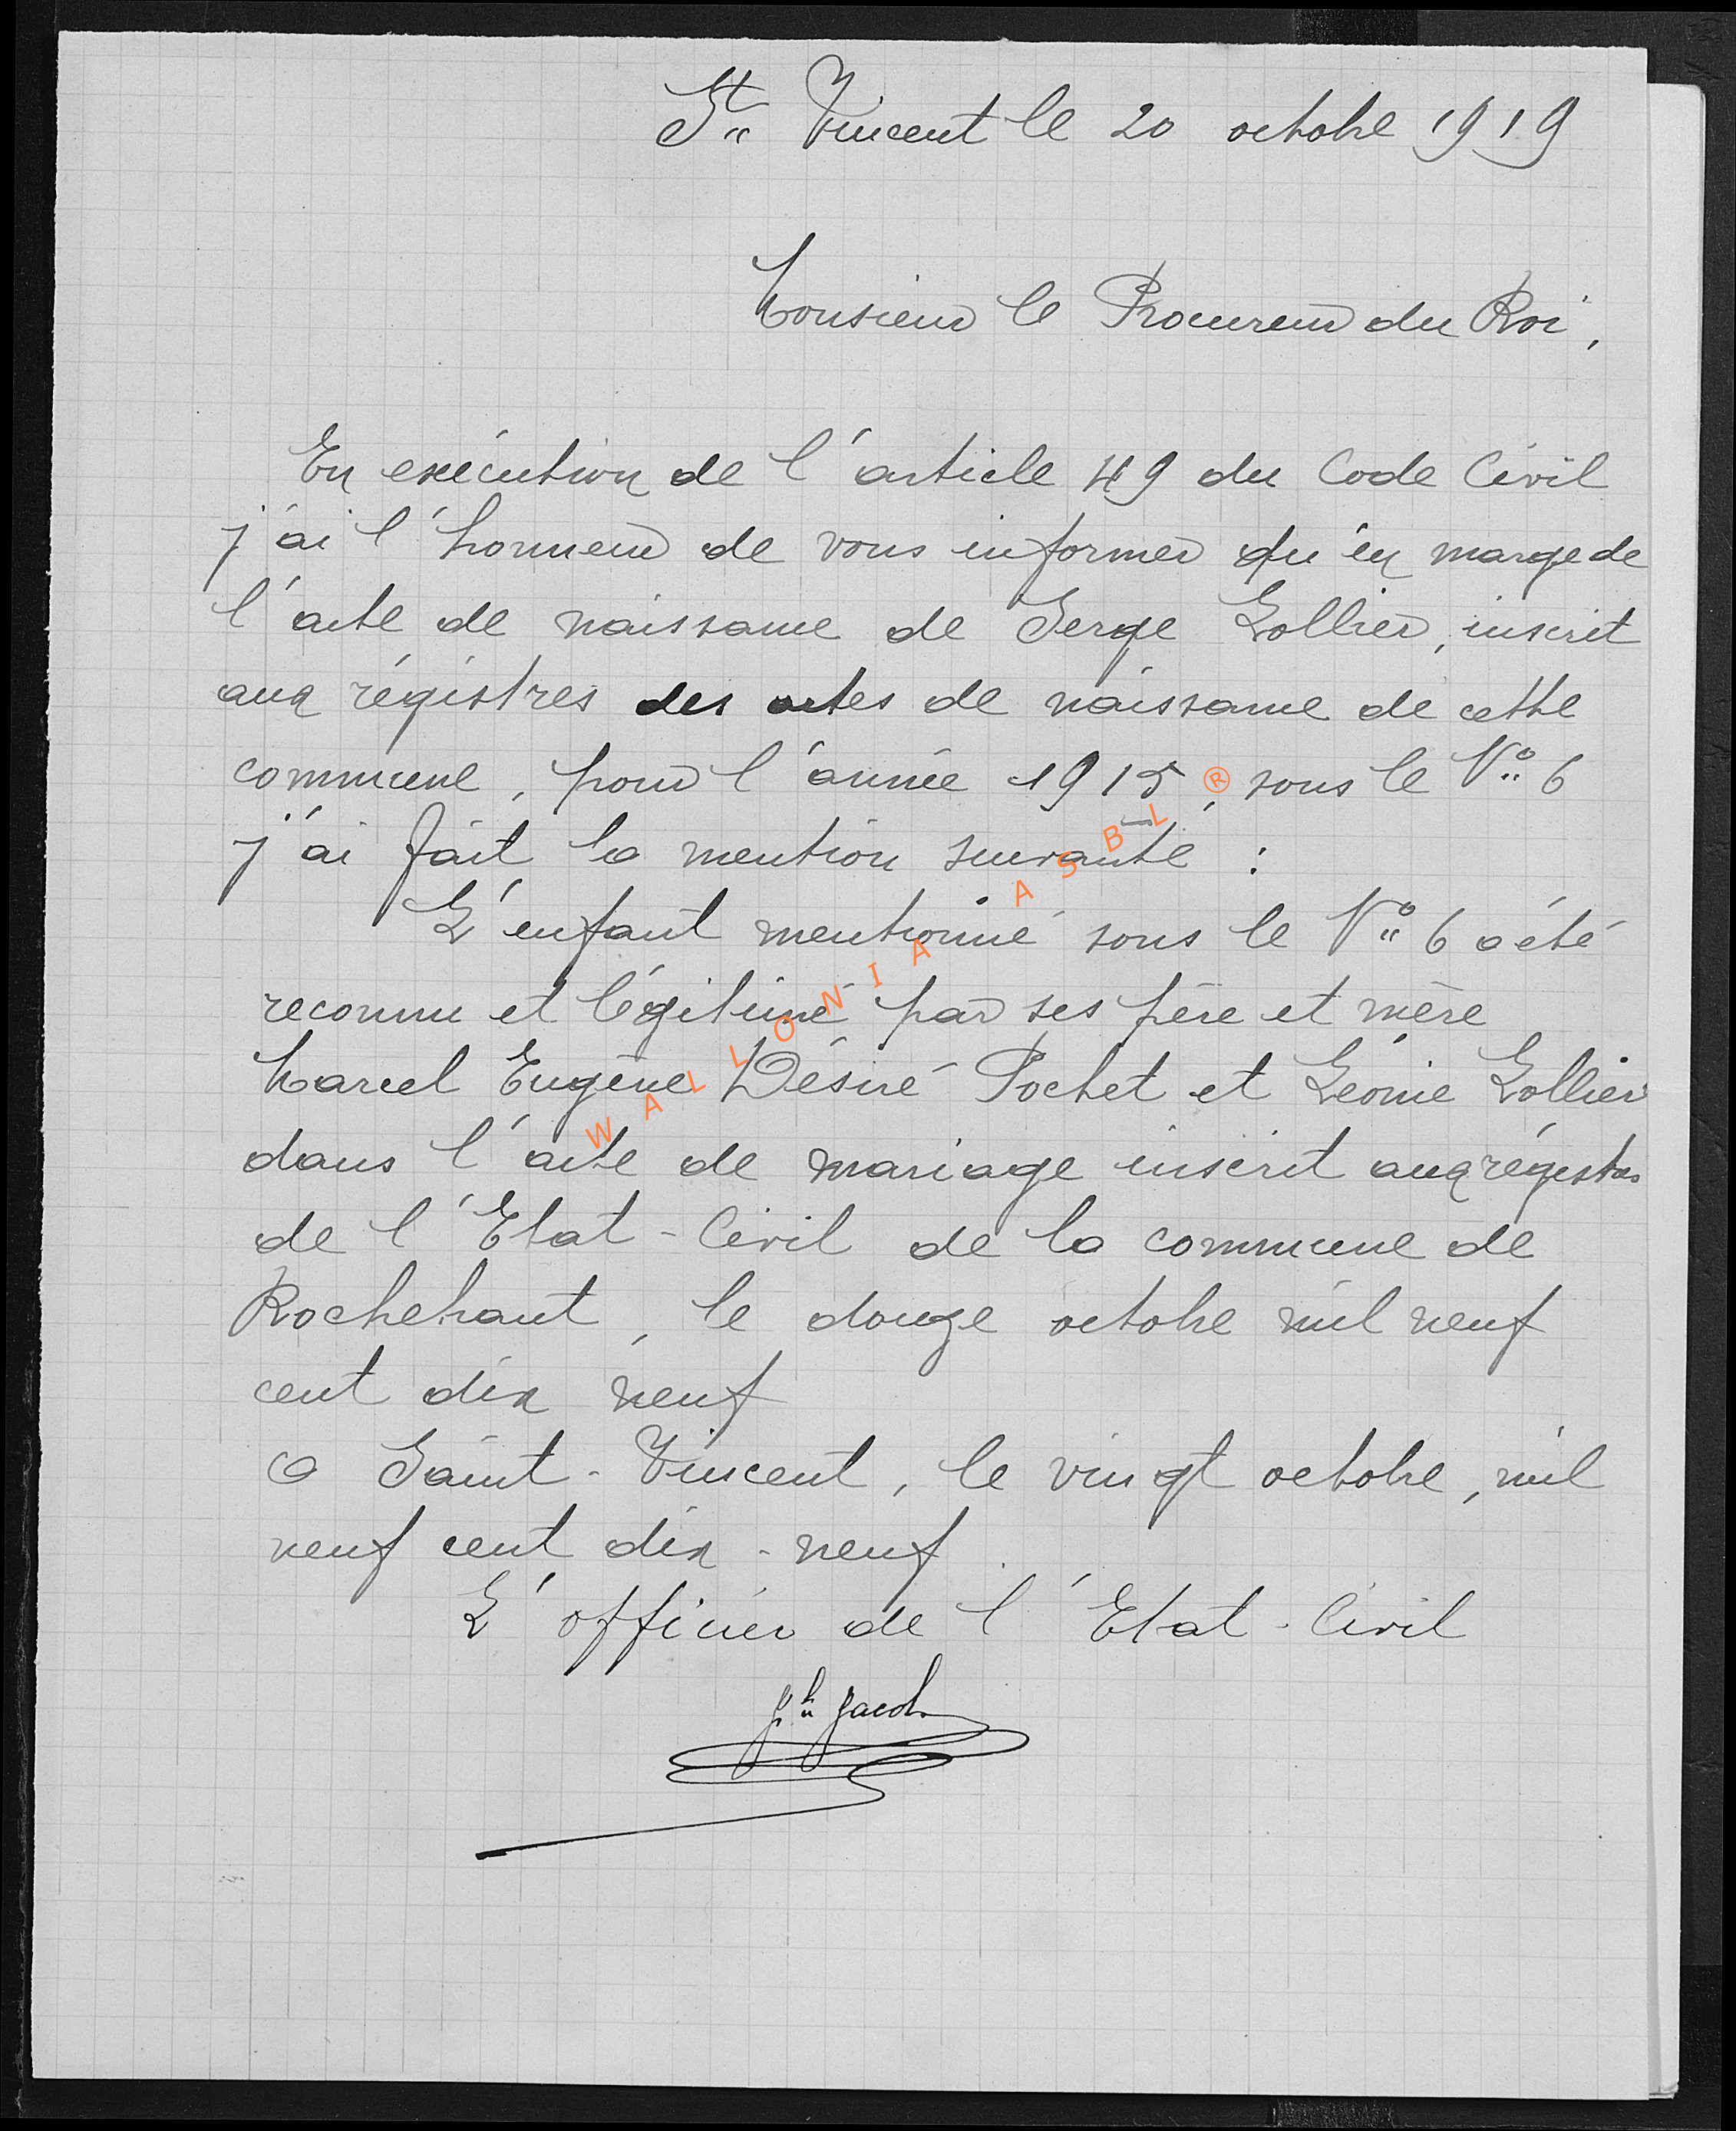 St Vincent le 20 octobre 1919
Monsieur le Procureur du Roi,
En exécution de l'article 49 du Code Civil
j'ai l'honneur de vous informer qu'en marge de
l'acte de naissance de Serge Lollier, inscrit
aux régistres des actes de naissance de cette
commune, pour l'année 1915, sous le No 6
j'ai fait la mention suivante :
L'enfant mentionné sous le No 6 a été
reconnu et légitimé par ses père et mère
Marcel Eugène Désiré Pochet et Léonie Lollier
dans l'acte de mariage inscrit aux régistres
de l'Etat-Civil de la commune de
Rochehaut, le douze octobre mil neuf
cent dix neuf
a Saint-Vincent, le vingt octobre, mil
neuf cent dix-neuf.
L'officier de l'Etat-Civil
Jh Jacob
WALLONIA ASBL ®